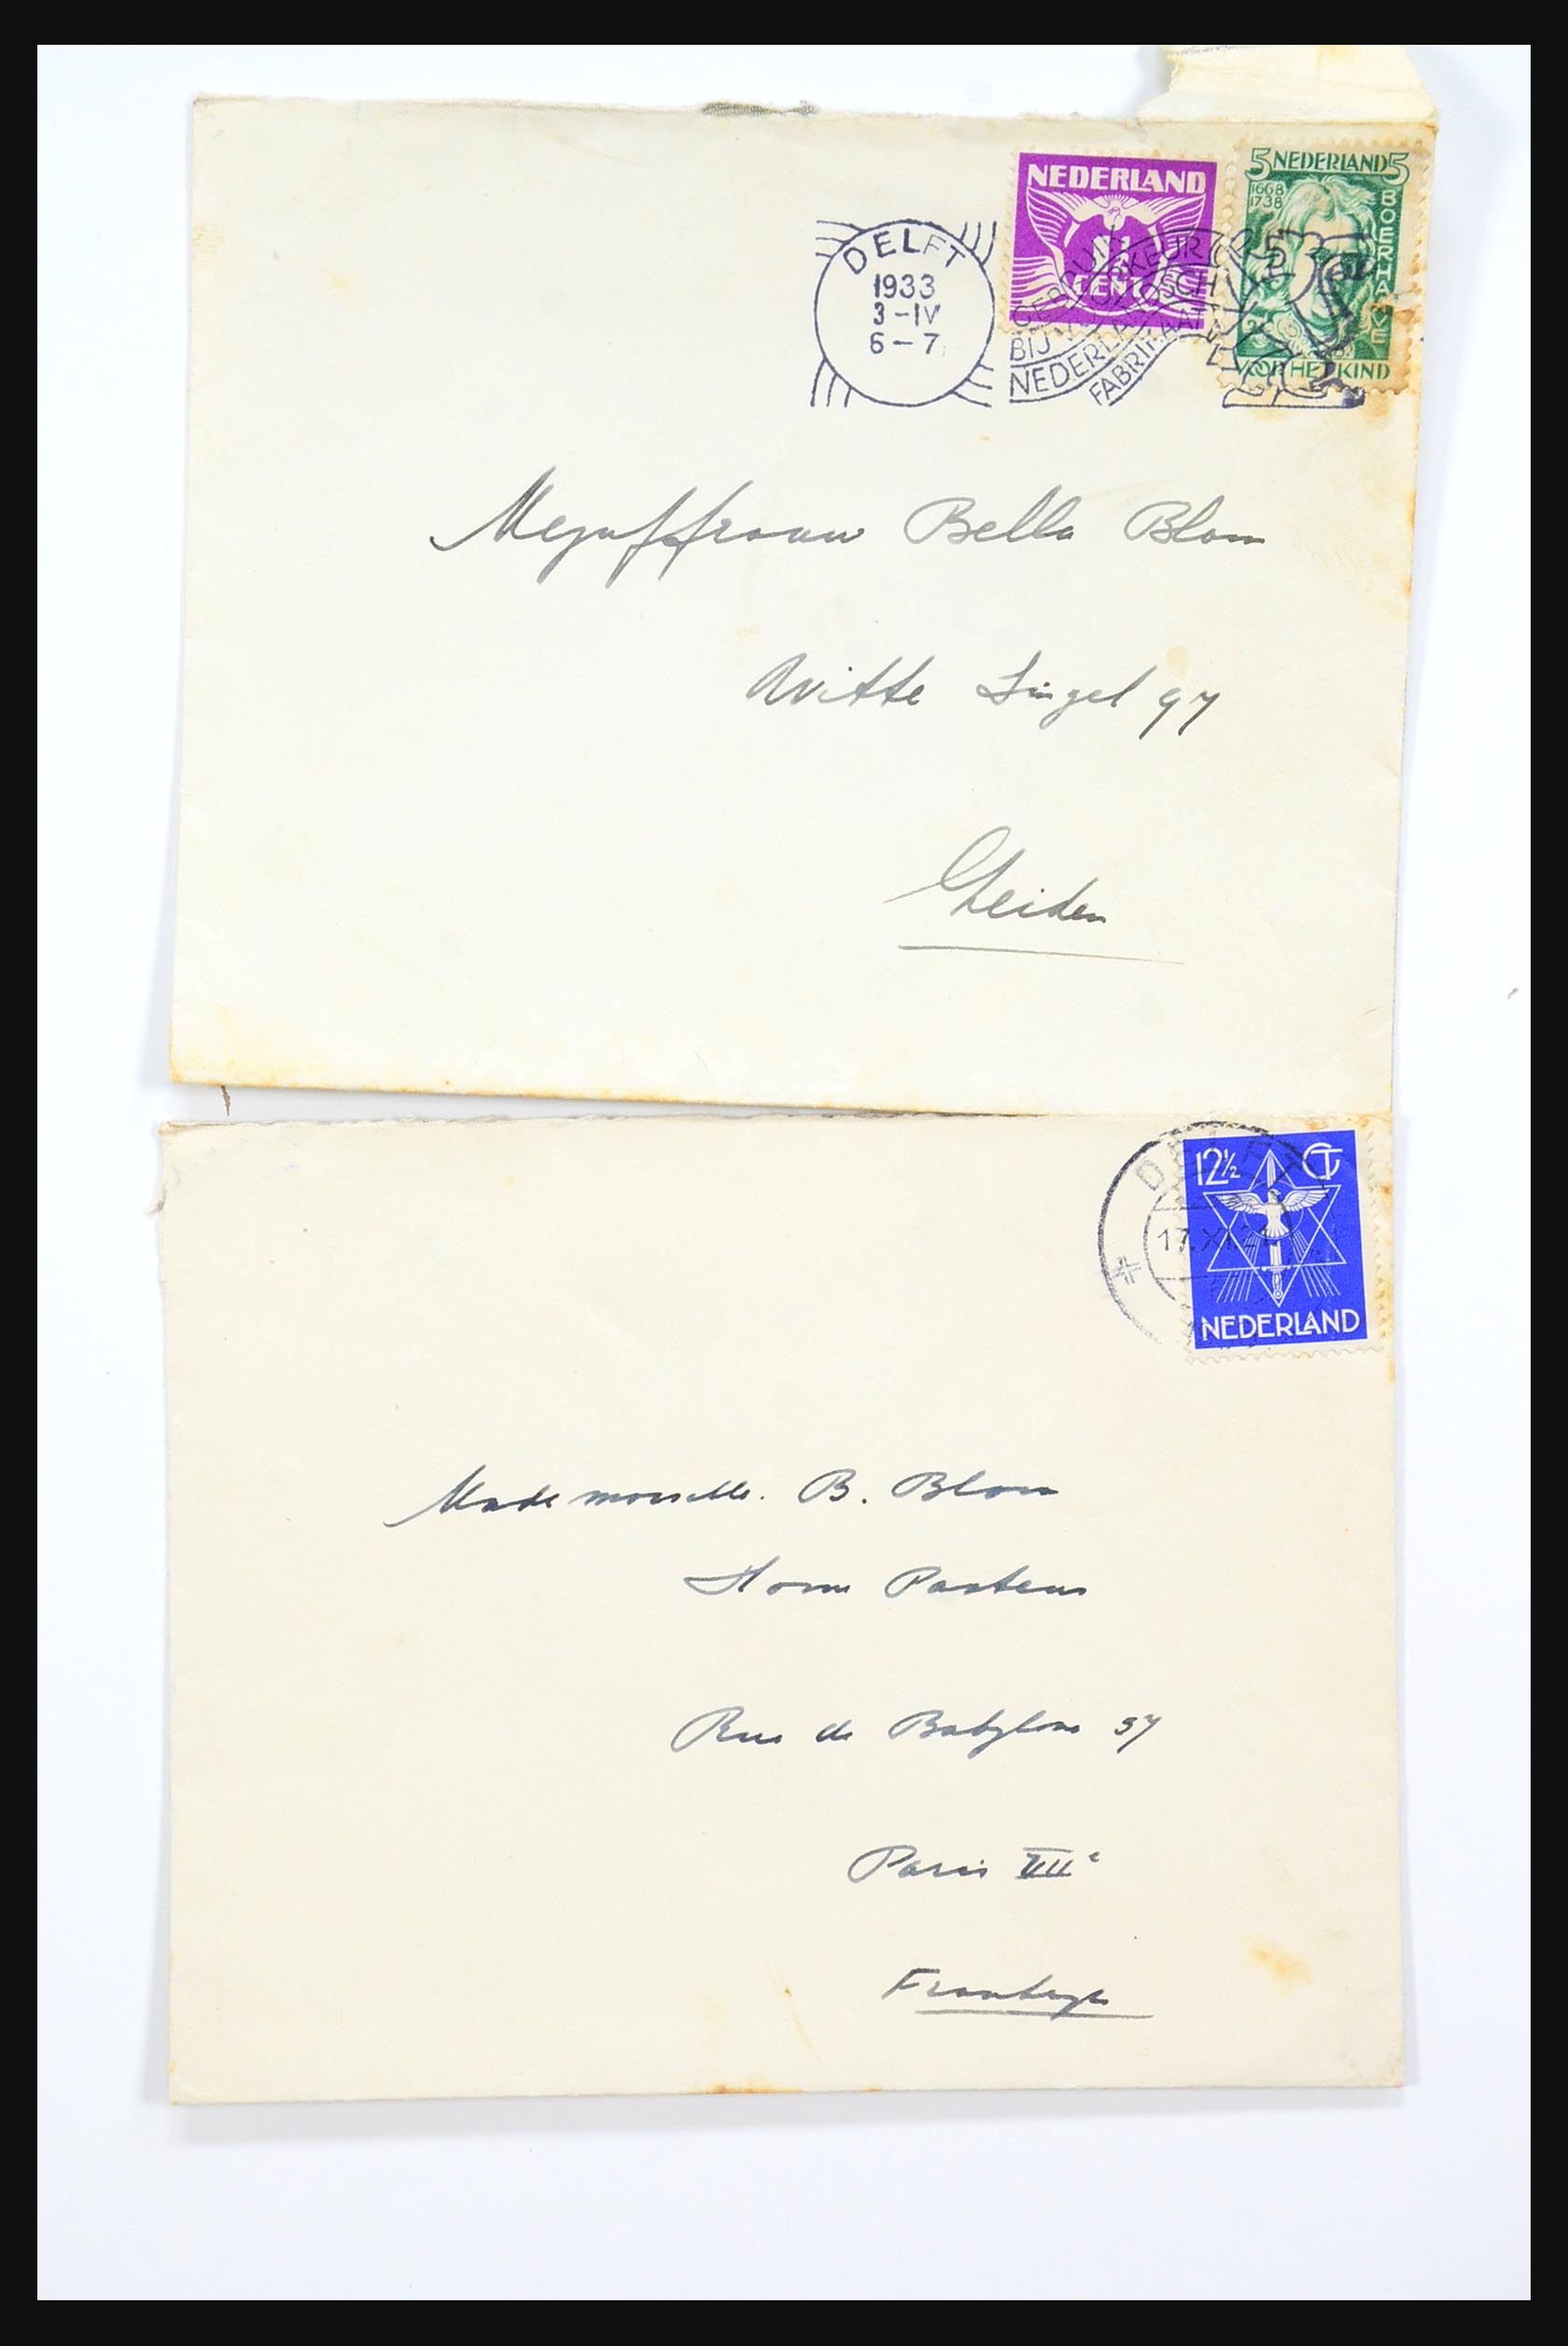 NEDERLAND
CENT
5 NEDERLAND 5
1668
1738
BOERHAAVE
VOOR HET KIND
DELFT
1933
3-IV
6-7
BIJ
NEDERLANDSCH
FABRIKAAT
Mejuffrouw Bella Blom
Witte Singel 97
Leiden
12½ CT
NEDERLAND
DELFT
Mademoiselle. B. Blom
Home Pasteur
Rue de Babylone 57
Paris VIIe
Frankrijk